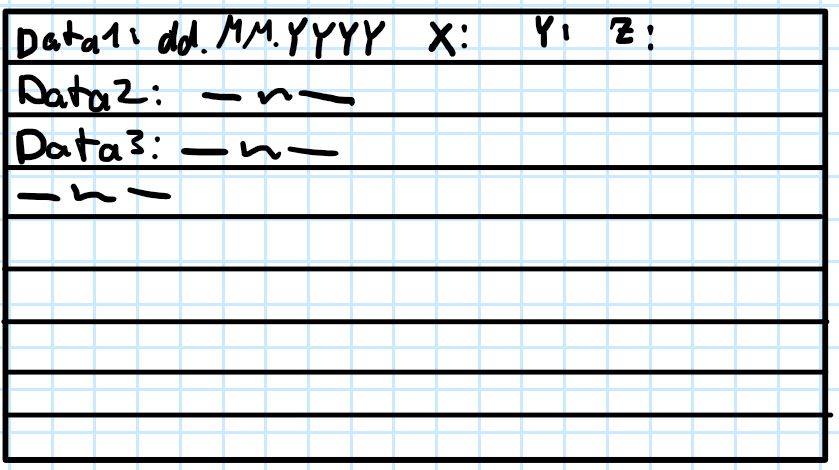 Data1: dd.MM.YYYY X: Y: Z:
Data2: — ~ —
Data3: — ~ —
— ~ —